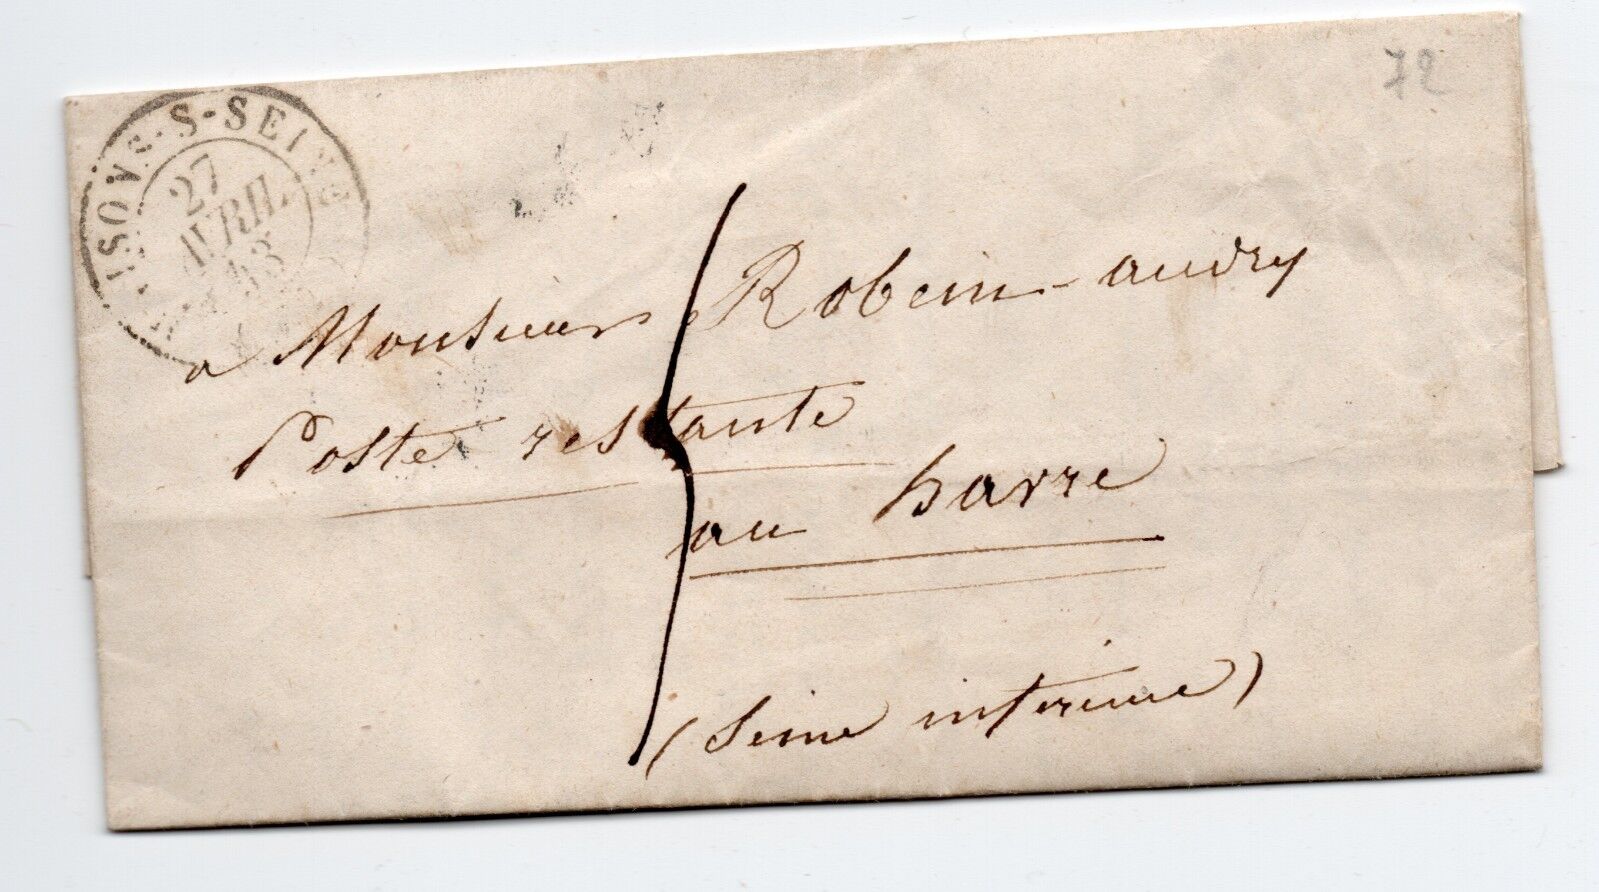 72
ISONS-S-SEINE
27
AVRIL
43
a Monsieur Robein-audry
Poste restante
au havre
(Seine inferieure)